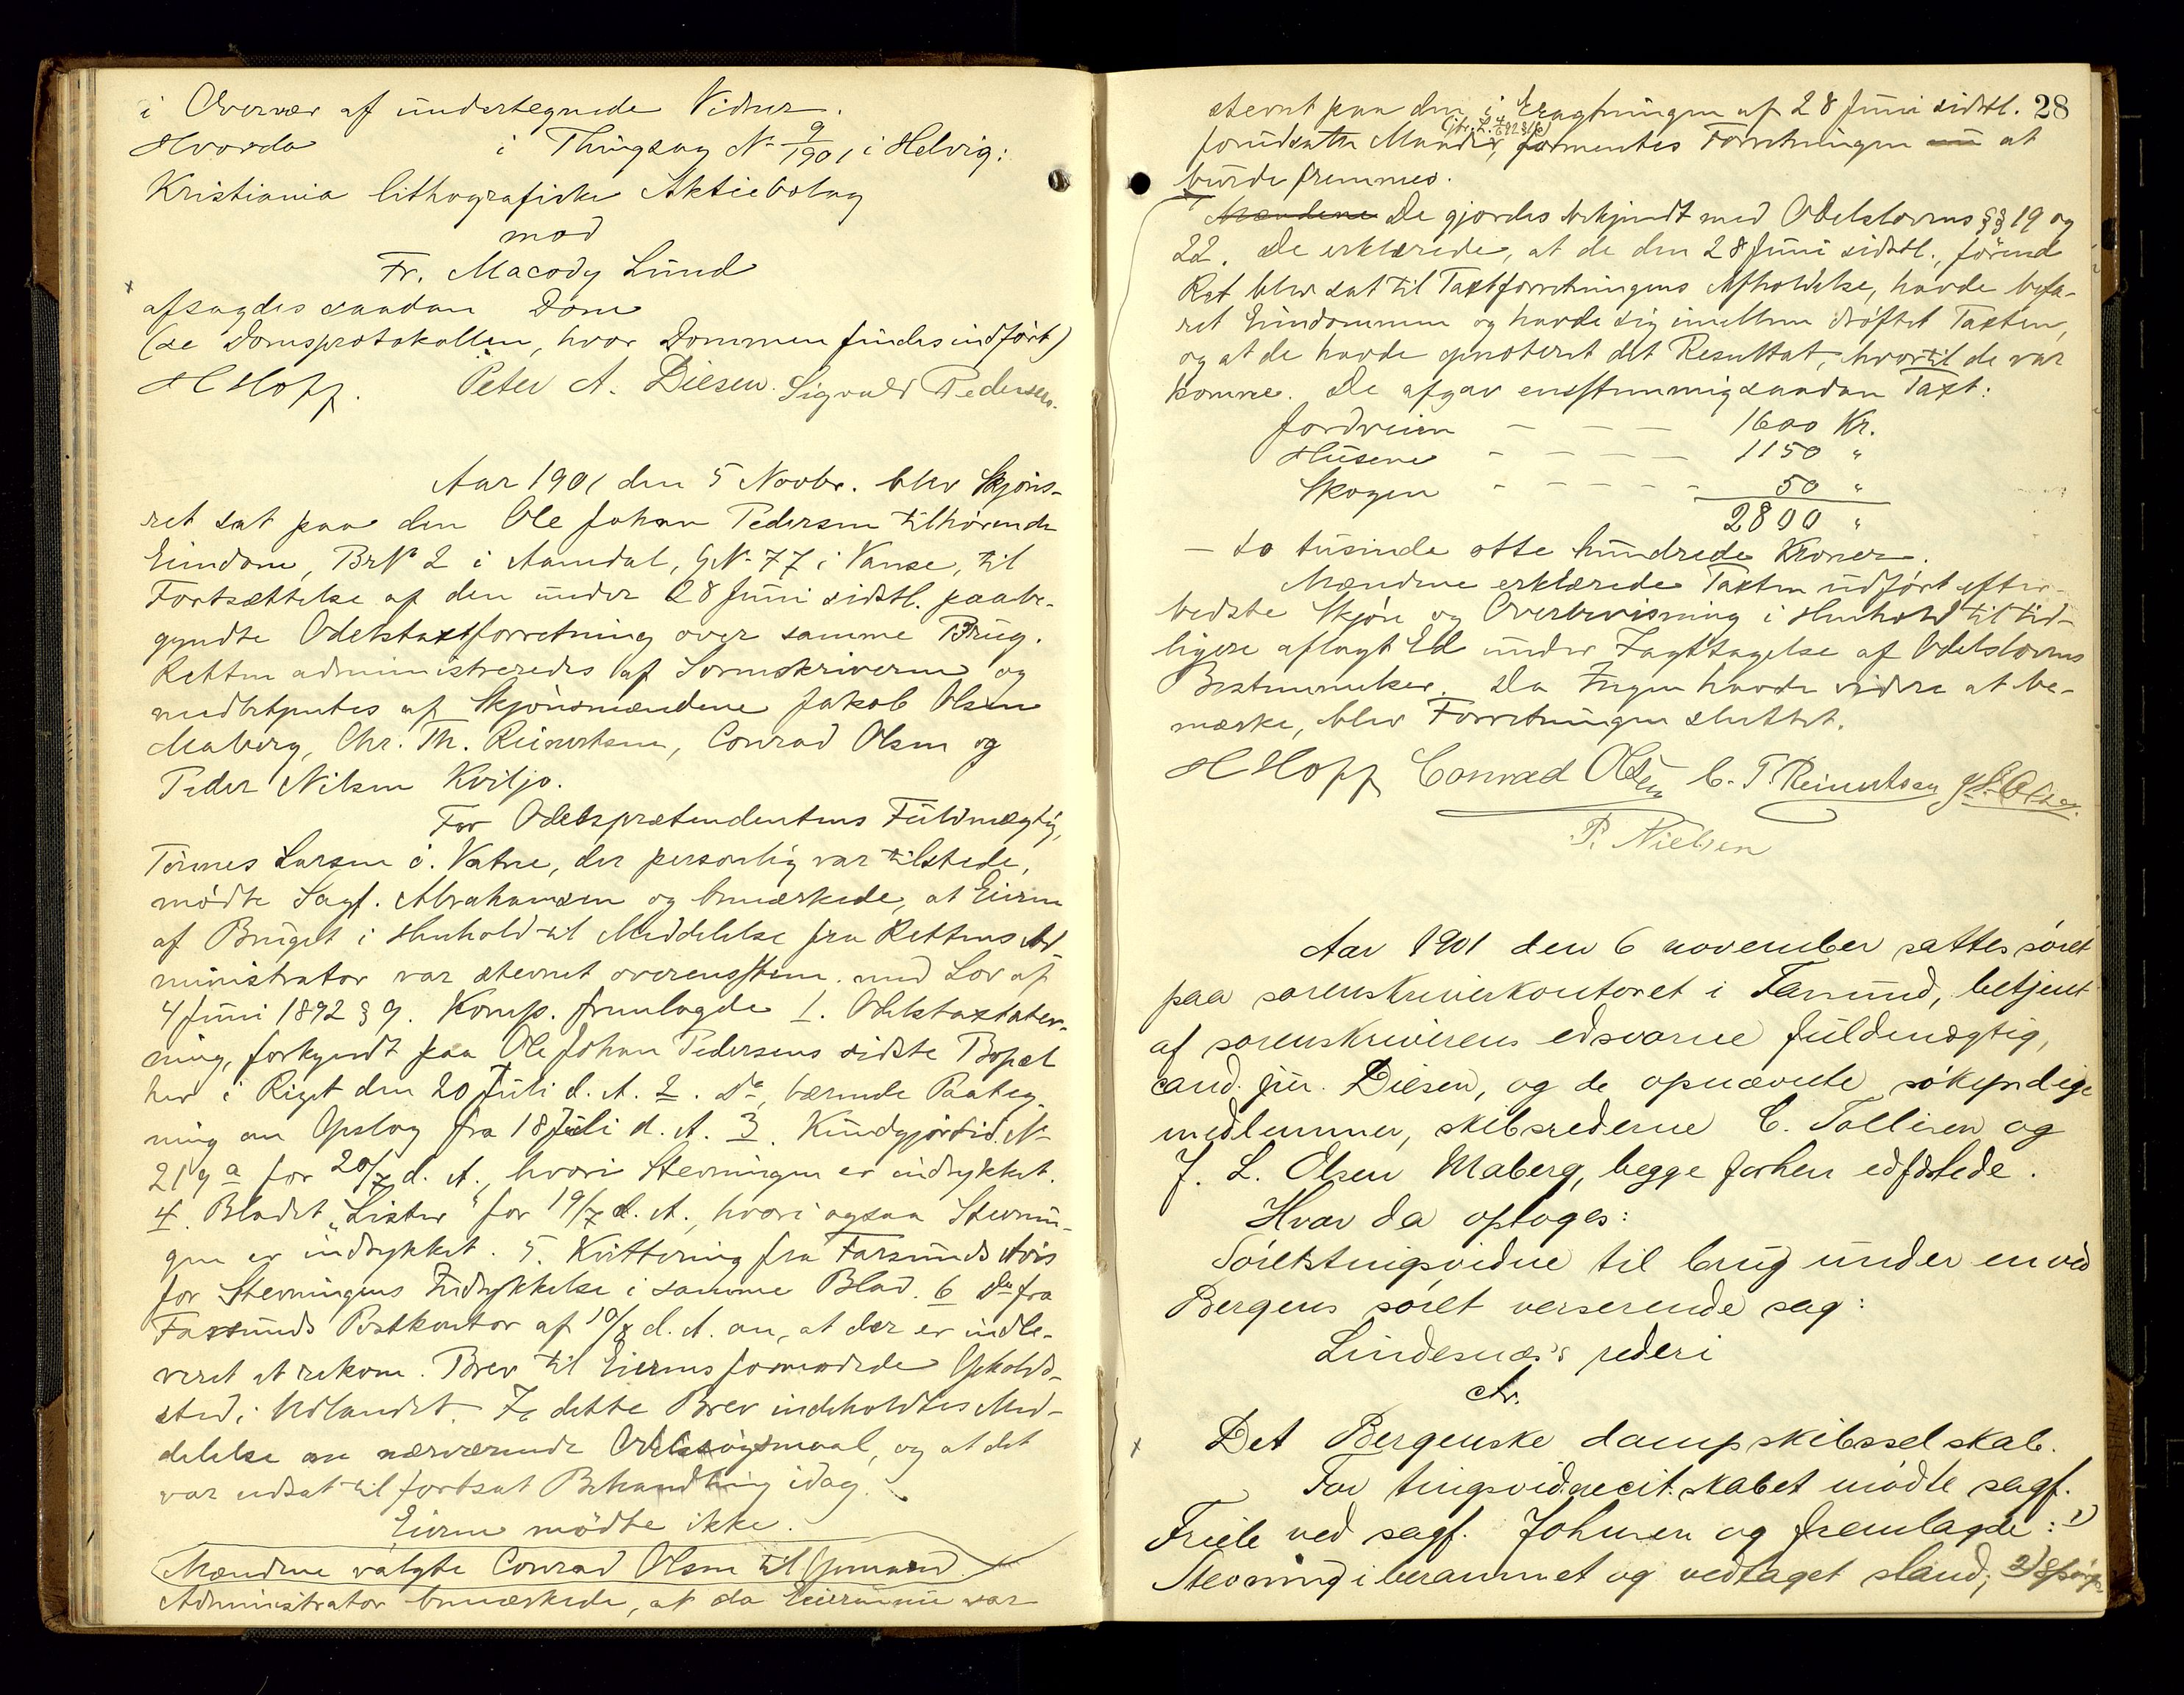 i Overvær af undertegnede Vidner.
Hvorda i Thingsag No 9/1901 i Helvig:
Kristiania lithografiske Aktiebolag
mod
Fr. Macody Lund
afsagdes saadan Dom
(se Domsprotokollen, hvor Dommen findes indført)
H Hopp. Peter A. Diesen. Sigvald Pedersen.
Aar 1901 den 5 Novbr. blev Skjøns-
ret sat paa den Ole Johan Pedersen tilhørende
Eiendom, BrNo 2 i Aamdal, GNo 77 i Vanse, til
Fortsættelse af den under 28 Juni sidstl. paabe-
gyndte Odelstaxtforretning over samme Brug.
Retten administreredes af Sorenskriveren og
medbetjentes af Skjønsmændene Jakob Olsen
Maberg, Chr. Th. Reinertsen, Conrad Olsen og
Peder Nilsen Kviljo.
For Odelsprætendentens Fuldmægtig,
Tønnes Larsen ø. Vatne, der personlig var tilstede,
mødte Sagf. Abrahamsen og bemærkede, at Eieren
af Bruget i Henhold til Meddelelse fra Rettens Ad-
ministrator var stevnet overensstem. med Lov af
4 Juni 1892 § 9. Komp. fremlagde 1. Odelstaxtstev-
ning, forkyndt paa Ole Johan Pedersens sidste Bopæl
her i Riget den 20 Juli d. A. 2. Do, bærende Paateg-
ning om Opslag fra 18 Juli d. A. 3. Kundgjørtid. No
219 a for 20/7 d. A., hvori Stevningen er indrykket.
4. Bladet "Lister" for 19/7 d. A., hvori ogsaa Stevnin-
gen er indrykket. 5. Kvittering fra Farsunds Avis
for Stevningens Indrykkelse i samme Blad. 6 Do fra
Farsunds Postkontor af 10/8 d. A. om, at der er indle-
veret et rekom. Brev til Eierens formodede Opholds-
sted i Udlandet. I dette Brev indeholdtes Med-
delelse om nærværende Odelssøgsmaal, og at det
var udsat til fortsat Behandling idag.
Eieren mødte ikke.
Mændene valgte Conrad Olsen til Formand.
Administrator bemærkede, at da Eieren nu var
stevnt paa den i Eragtningen af 28 Juni sidstl. 28
forudsatte Maade, formentes Forretningen nu at
burde fremmes.
Mændene De gjordes bekjendt med Odelslovens §§ 19 og
22. De erklærede, at de den 28 Juni sidstl., førend
Ret blev sat til Taxtforretningens Afholdelse, havde befa-
ret Eiendommen og havde sig imellem drøftet Taxten,
og at de havde opnoteret det Resultat, hvortil de var
komne. De afgav enstemmig saadan Taxt:
Jordveien - - - 1600 Kr.
Husene - - - - 1150 "
Skogen - - - - - 50 "
2800 "
- to tusinde otte hundrede Kroner.
Mændene erklærede Taxten udført efter
bedste Skjøn og Overbevisning i Henhold til tid-
ligere aflagt Ed under Iagttagelse af Odelslovens
Bestemmelser. Da Ingen havde videre at be-
mærke, blev Forretningen sluttet.
H Hopp Conrad Olsen C. T. Reinertsen J. L. Olsen
P. Nielsen
Aar 1901 den 6 november sattes søret
paa sorenskriverkontoret i Farsund, betjent
af sorenskriverens edsvorne fuldmægtig,
cand. jur. Diesen, og de opnævnte søkyndige
medlemmer, skibsrederne C. Tallisen og
J. L. Olsen Maberg, begge forhen edfæstede.
Hvor da optoges:
Søretstingsvidne til brug under en ved
Bergens søret verserende sag:
Lindesnæs's rederi
ctr.
Det Bergenske dampskibsselskab.
For tingsvidnecit.skabet mødte sagf.
Friele ved sagf. Johnsen og fremlagde: 1)
Stevning i berammet og vedtaget stand; 2)